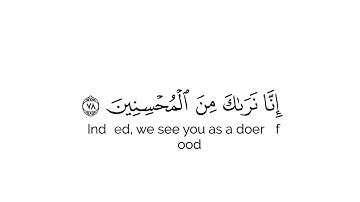 إِنَّا نَرَىٰكَ مِنَ ٱلْمُحْسِنِينَ ٧٨
Ind ed, we see you as a doer f
ood